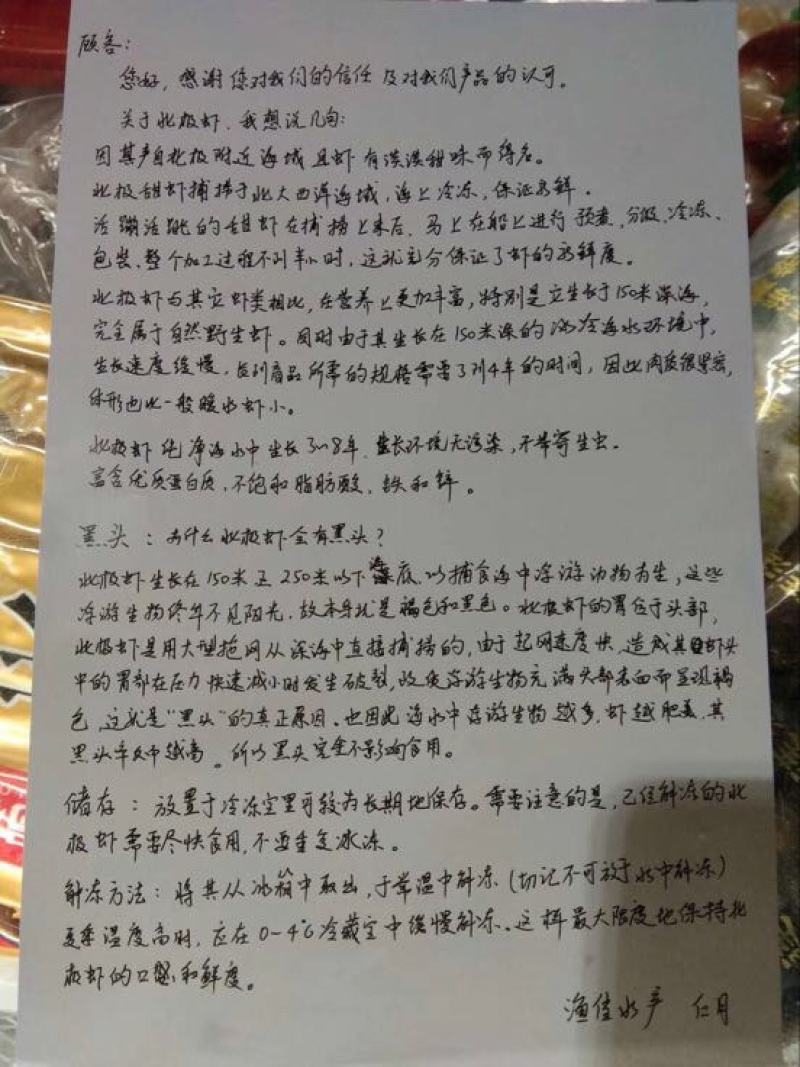 顾客：
您好，感谢您对我们的信任及对我们产品的认可。
关于北极虾，我想说几句：
因其产自北极附近海域且虾有淡淡甜味而得名。
北极甜虾捕捞于北大西洋海域，海上冷冻，保证新鲜。
活蹦活跳的甜虾在捕捞上来后，马上在船上进行预煮，分级、冷冻、
包装，整个加工过程不到半小时，这就充分保证了虾的新鲜度。
北极虾与其它虾类相比，在营养上更加丰富，特别是它生长于150米深海，
完全属于自然野生虾。同时由于其生长在150米深的冰冷海水环境中，
生长速度缓慢，长到商品所需的规格需要3到4年的时间，因此肉质很紧密，
体形也比一般暖水虾小。
北极虾纯净海水中生长3~8年，生长环境无污染，不带寄生虫。
富含优质蛋白质，不饱和脂肪酸，铁和锌。
黑头：为什么北极虾会有黑头？
北极虾生长在150米至250米以下海底，以捕食海中浮游动物为生，这些
浮游生物终年不见阳光，故本身就是褐色和黑色。北极虾的胃位于头部，
北极虾是用大型拖网从深海中直接捕捞的，由于起网速度快，造成其虾头
中的胃部在压力快速减小时发生破裂，致使浮游生物充满头部表面而呈现褐
色，这就是“黑头”的真正原因。也因此海水中浮游生物越多，虾越肥美，其
黑头率又越高。所以黑头完全不影响食用。
储存：放置于冷冻室里可较为长期地保存。需要注意的是，已经解冻的北
极虾需要尽快食用，不要重复冰冻。
解冻方法：将其从冰箱中取出，于常温中解冻（切记不可放于水中解冻）
夏季温度高时，应在0-4℃冷藏室中缓慢解冻。这样最大限度地保持北
极虾的口感和鲜度。
渔佳水产 仁月